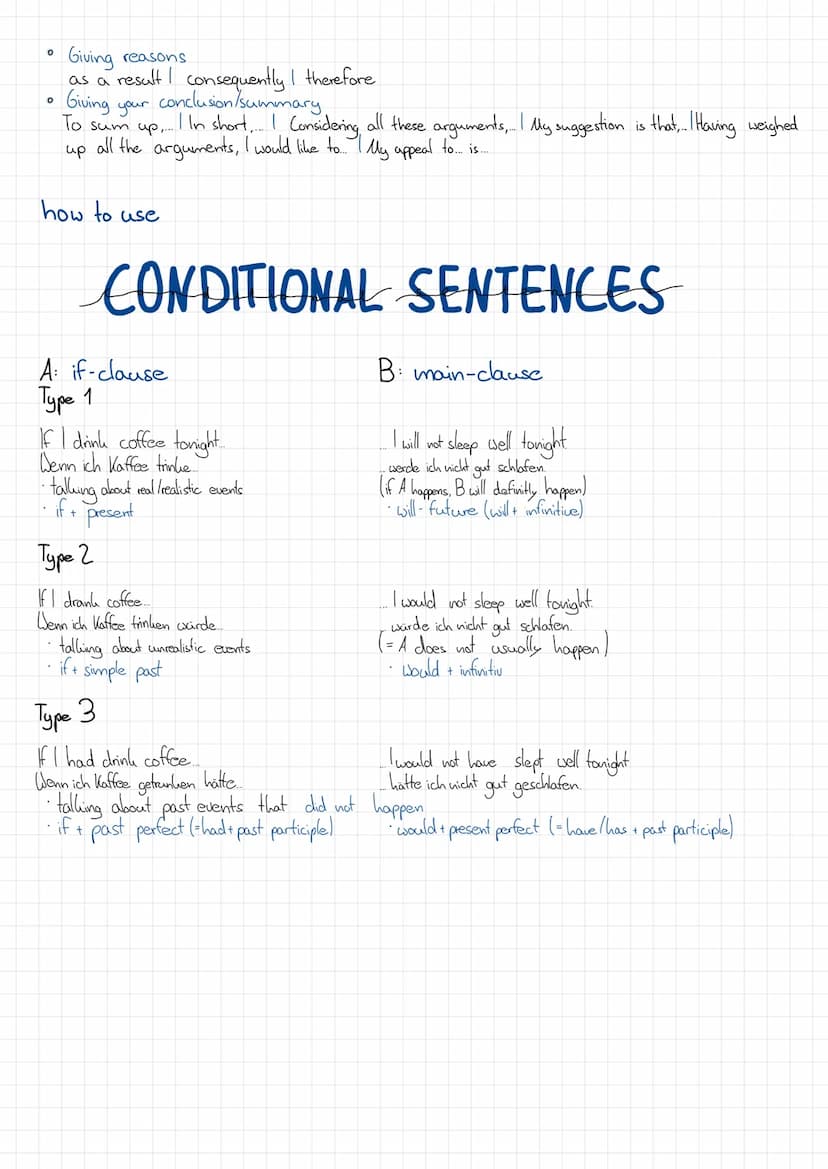 ° Giving reasons
as a result | consequently | therefore
° Giving your conclusion/summary
To sum up,... | In short,... | Considering all these arguments,... | My suggestion is that,... | Having weighed
up all the arguments, I would like to... | My appeal to... is...
how to use
CONDITIONAL SENTENCES
A: if-clause B: main-clause
Type 1
If I drink coffee tonight... ...I will not sleep well tonight.
Wenn ich Kaffee trinke... ...werde ich nicht gut schlafen.
· talking about real/realistic events (if A happens, B will definitly happen)
· if + present · will-future (will + infinitive)
Type 2
If I drank coffee... ...I would not sleep well tonight.
Wenn ich Kaffee trinken würde... ...würde ich nicht gut schlafen.
· talking about unrealistic events (= A does not usually happen)
· if + simple past · would + infinitiv
Type 3
If I had drink coffee... ...I would not have slept well tonight
Wenn ich Kaffee getrunken hätte... ...hätte ich nicht gut geschlafen.
· talking about past events that did not happen
· if + past perfect (=had + past participle) · would + present perfect (= have/has + past participle)